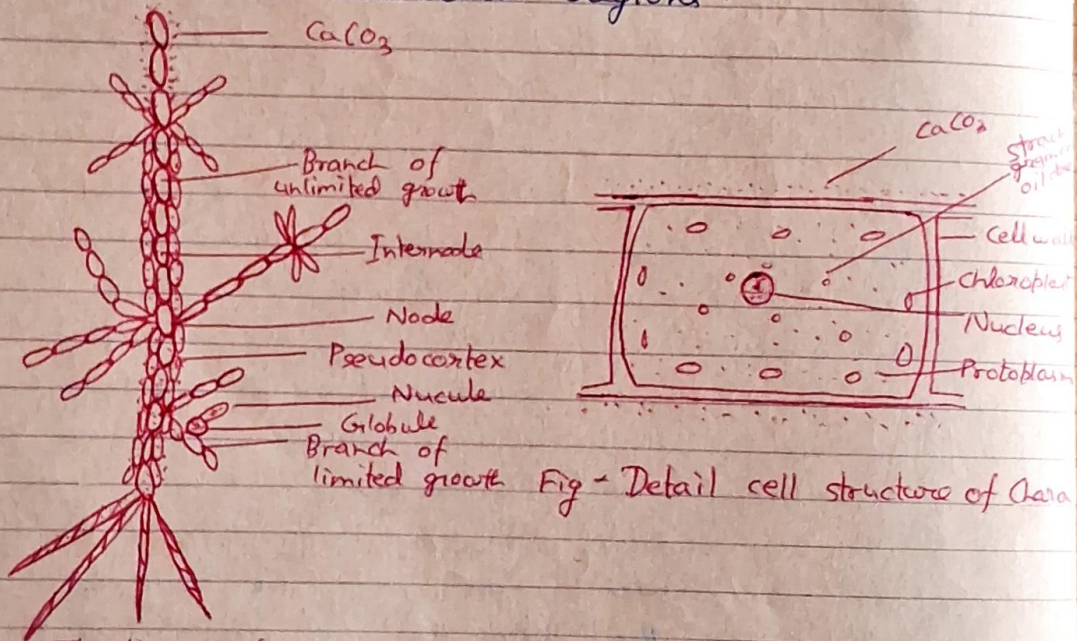 CaCO3
Branch of
unlimited growth
Internode
Node
Pseudocortex
Nucule
Globule
Branch of
limited growth
CaCO3
Cell
Nucleus
Fig - Detail cell structure of Chara